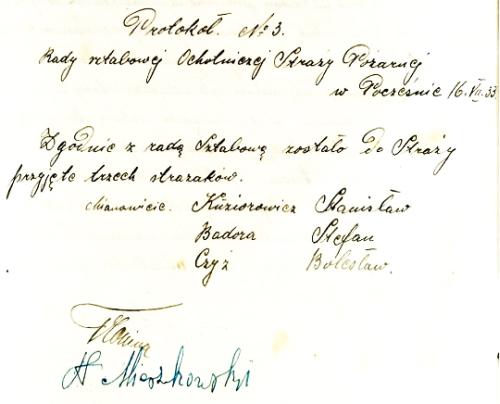 Protokoł. № 3.
Rady sztabowej Ochotniczej Straży Pożarnej
w Poczesnie 16.VII.33
Zgodnie z radą Sztabową zostało do Straży
przyjęte trzech strażaków.
mianowicie. Kuziorowicz Stanisław
Badora Stefan
Czyż Bolesław.
H Mieszkowski